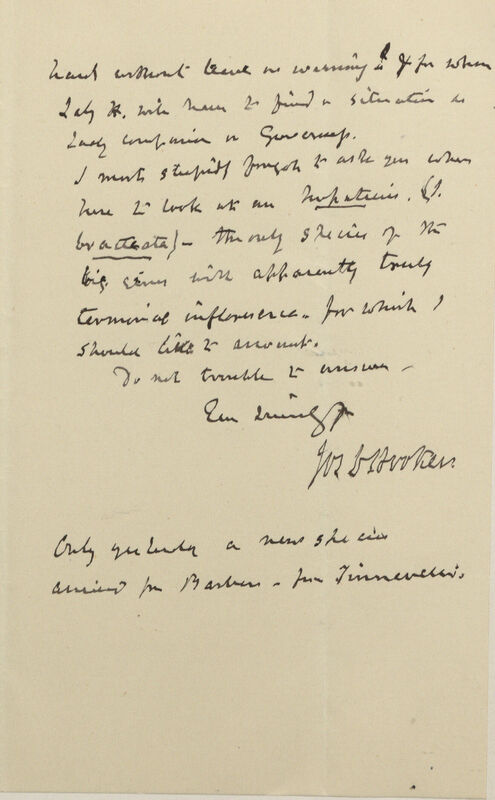 hand without leave or warning! & for whom
Lady H. will have to find a situation as
Lady companion or Governess.
I most stupidly forgot to ask you when
here to look at an Impatiens. (I.
bracteata) — the only species of the
big genus with apparently truly
terminal inflorescence. for which I
should like to account.
Do not trouble to answer —
Ever sincerely yrs
Jos D Hooker.
Only yesterday a new species
arrived from Barber — from Tinnevelli.